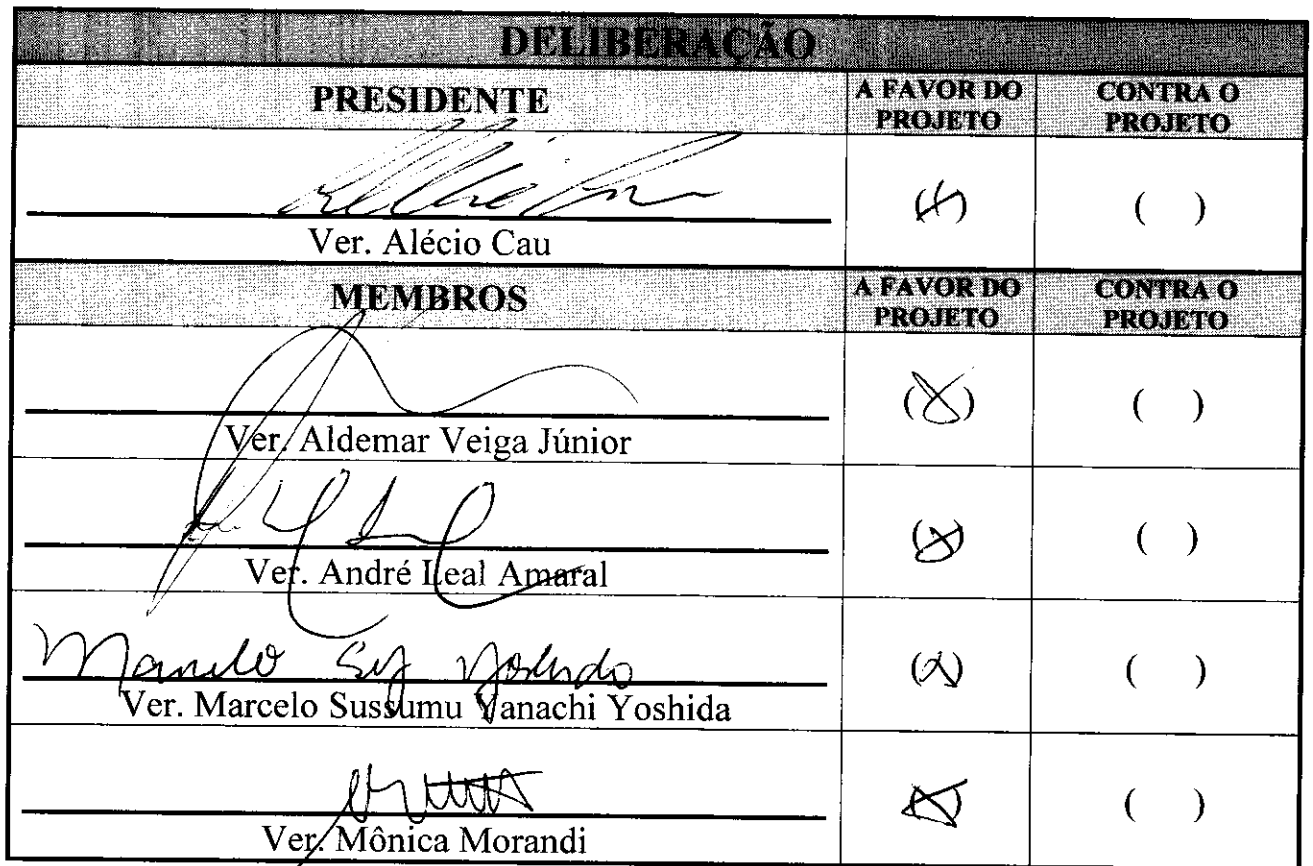 DELIBERAÇÃO
PRESIDENTE A FAVOR DO PROJETO CONTRA O PROJETO
(X) ( )
Ver. Alécio Cau
MEMBROS A FAVOR DO PROJETO CONTRA O PROJETO
(X) ( )
Ver. Aldemar Veiga Júnior
(X) ( )
Ver. André Leal Amaral
(X) ( )
Ver. Marcelo Sussumu Yanachi Yoshida
(X) ( )
Ver. Mônica Morandi